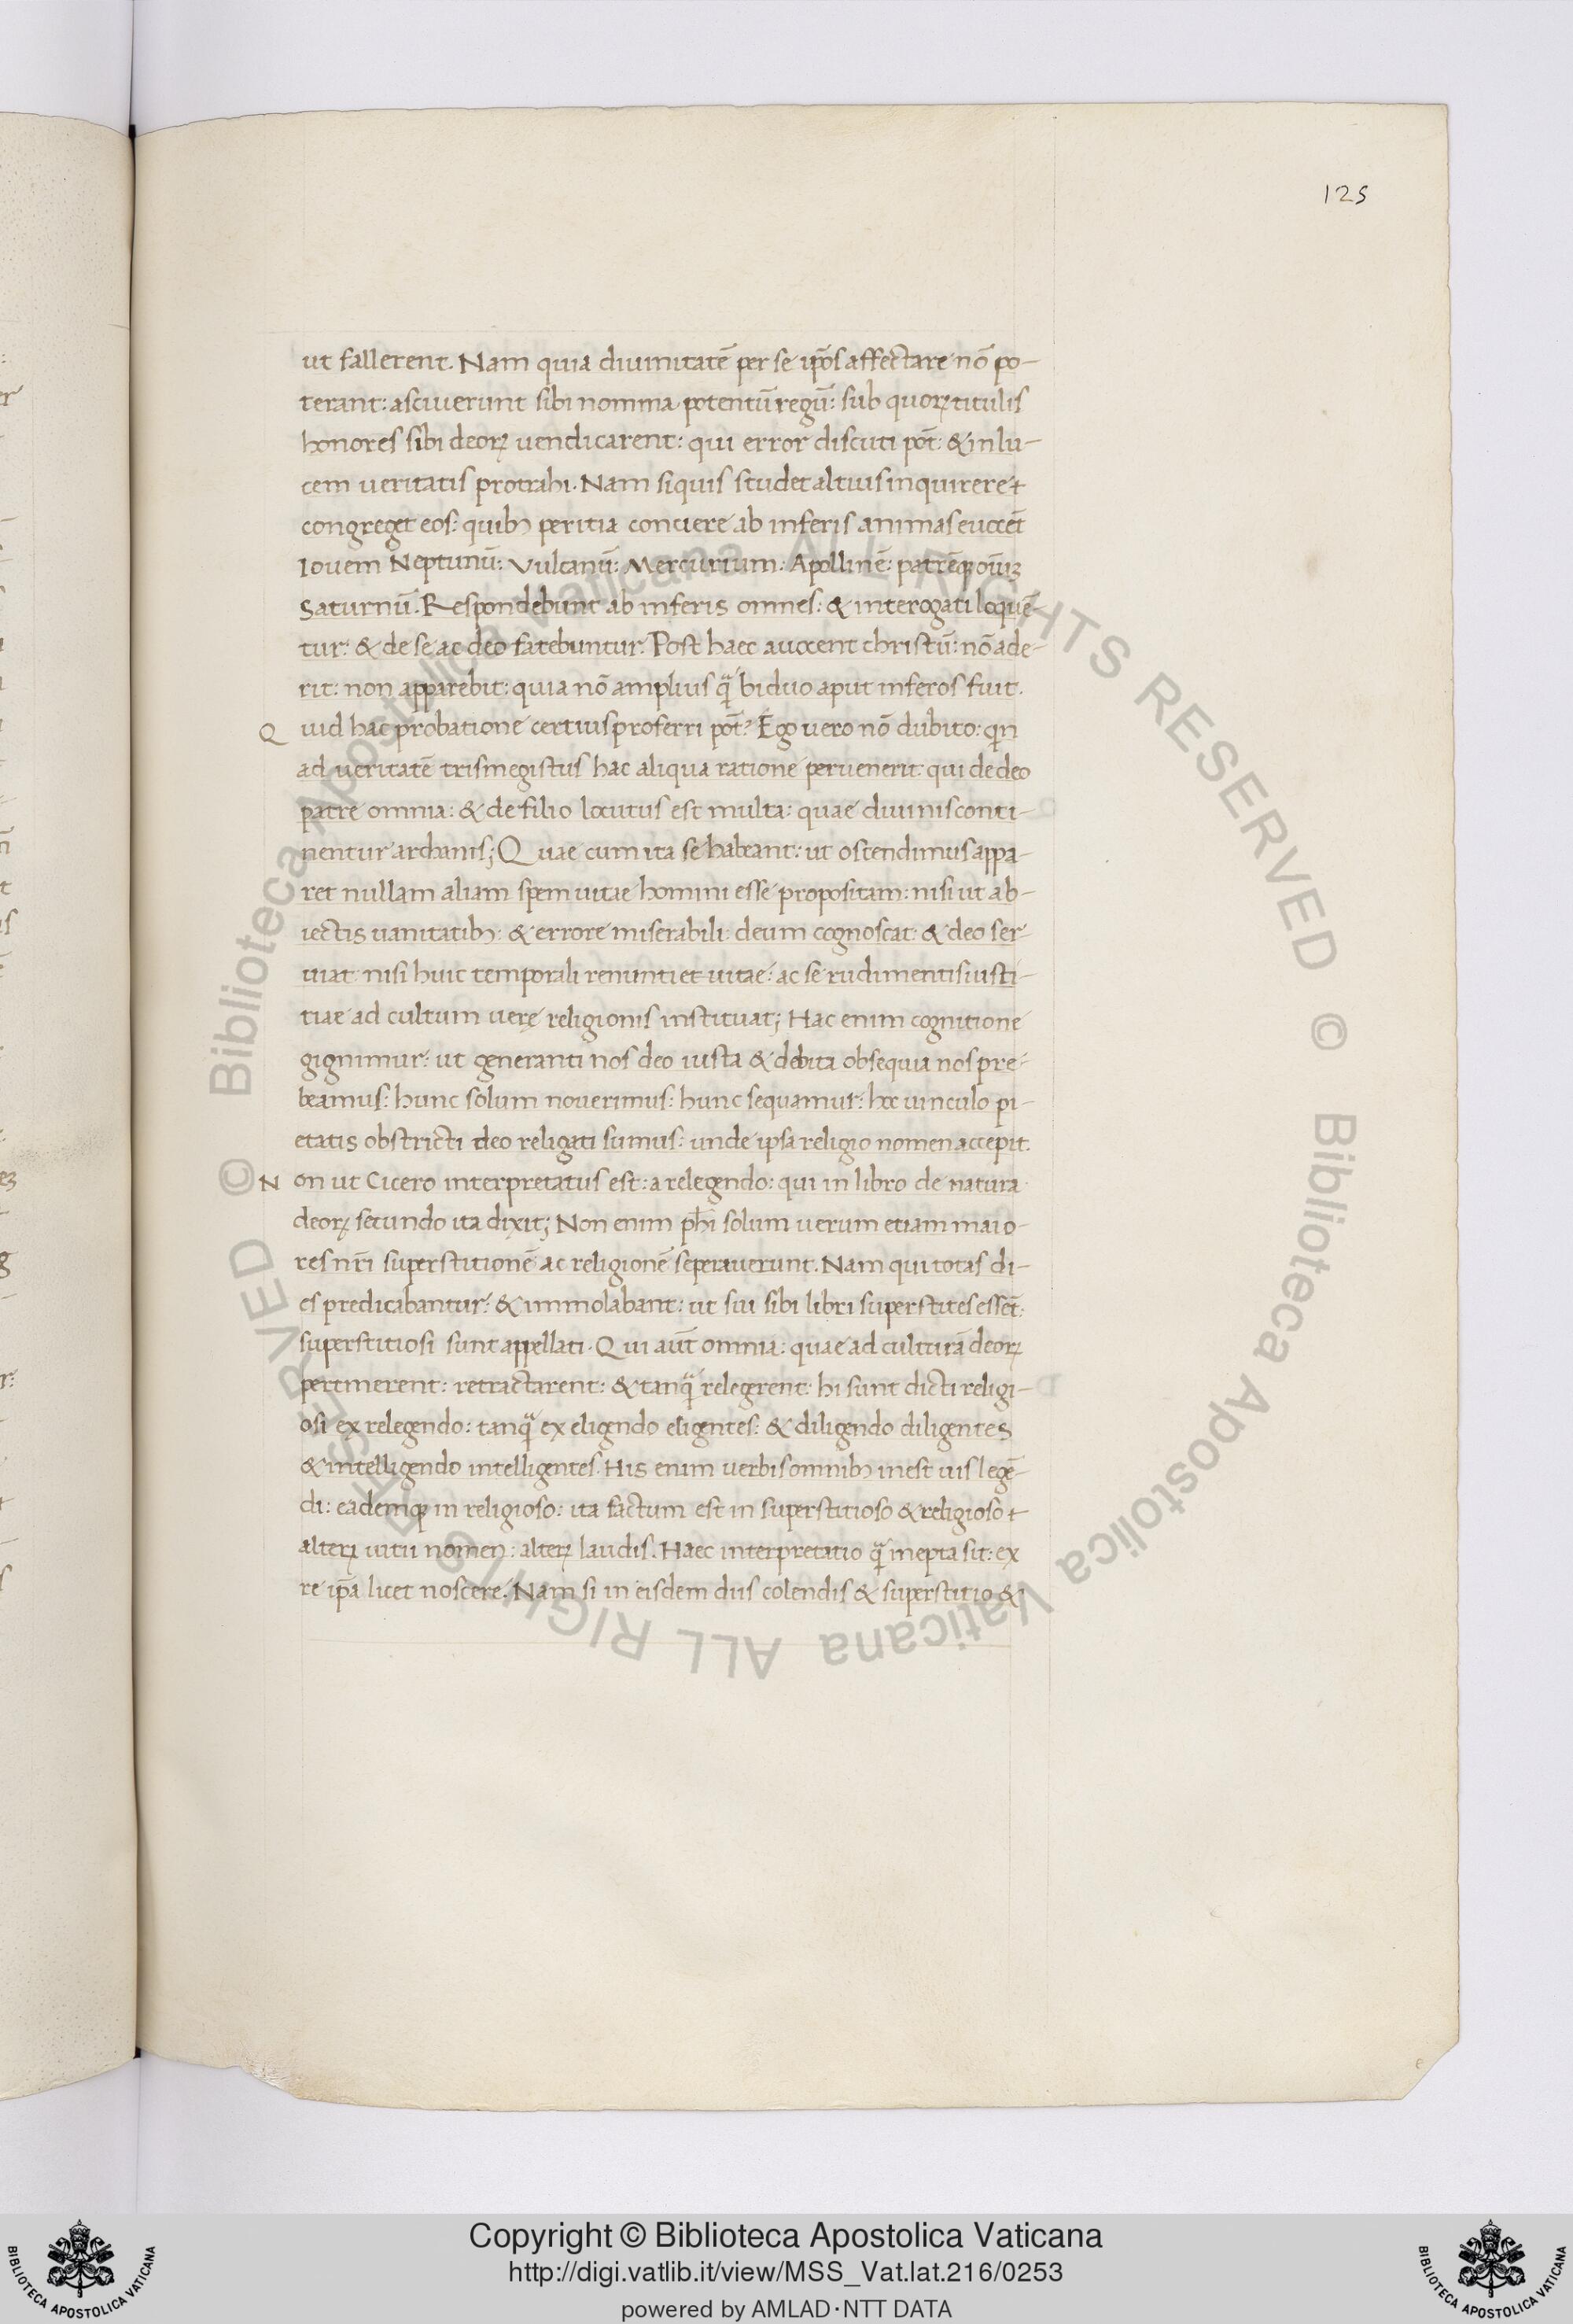 125
ut fallerent. Nam quia diuinitatē per se ip̄os affectare nō po-
terant: asciuerunt sibi nomina potentū regū: sub quoꝝ titulis
honores sibi deoꝝ uendicarent: qui error discuti pōt: & in lu-
cem ueritatis protrahi. Nam siquis studet altius inquirere
congreget eos: quibꝫ peritia conciere ab inferis animas euocēt
Iouem Neptunū: Vulcanū: Mercurium: Apollinē: patrēqꝫ oīuꝫ
Saturnū. Respondebunt ab inferis omnes: & interogati loquē-
tur: & de se ac deo fatebuntur. Post haec auocent christū: nō ade-
rit: non apparebit: quia nō amplius qͣ̄ biduo aput inferos fuit.
Quid hac probatione certius proferri pōt? Ego uero nō dubito: qn
ad ueritatē trismegistus hac aliqua ratione peruenerit: qui de deo
patre omnia: & de filio locutus est multa: quae diuinis conti-
nentur archanis; Quae cum ita se habeant: ut ostendimus appa-
ret nullam aliam spem uitae homini esse propositam: nisi ut ab-
iectis uanitatibꝫ: & errore miserabili: deum cognoscat: & deo ser-
uiat: nisi huic temporali renuntiet uitae: ac se rudimentis iusti-
tiae ad cultum uerę religionis instituat; Hac enim cognitione
gignimur: ut generanti nos deo iusta & debita obsequia nos pre-
beamus: hunc solum nouerimus: hunc sequamur: hoc uinculo pi-
etatis obstricti deo religati sumus: unde ipsa religio nomen accepit.
Non ut Cicero interpretatus est: a relegendo: qui in libro de natura
deoꝝ secundo ita dixit; Non enim phi solum uerum etiam maio-
res nr̄i superstitionē ac religionē seperauerunt. Nam qui totas di-
es predicabantur: & immolabant: ut sui sibi libri superstites essēt:
superstitiosi sunt appellati. Qui aūt omnia: quae ad culturā deoꝝ
pertinerent: retractarent: & tanqͣ̄ relegrent: hi sunt dicti religi-
osi ex relegendo: tanqͣ̄ ex eligendo eligentes: & diligendo diligentes
& intelligendo intelligentes. His enim uerbis omnibꝫ inest uis legē-
di: eademqꝫ in religioso: ita factum est in superstitioso & religioso
alteꝝ uitii nomen: alteꝝ laudis. Haec interpretatio qͣ̄ inepta sit: ex
re ip̄a licet noscere. Nam si in eisdem diis colendis & superstitio &
© Biblioteca Apostolica Vaticana ALL RIGHTS RESERVED © Biblioteca Apostolica Vaticana ALL RIGHTS RESERVED
BIBLIOTECA APOSTOLICA VATICANA
Copyright © Biblioteca Apostolica Vaticana
http://digi.vatlib.it/view/MSS_Vat.lat.216/0253
powered by AMLAD·NTT DATA
BIBLIOTECA APOSTOLICA VATICANA